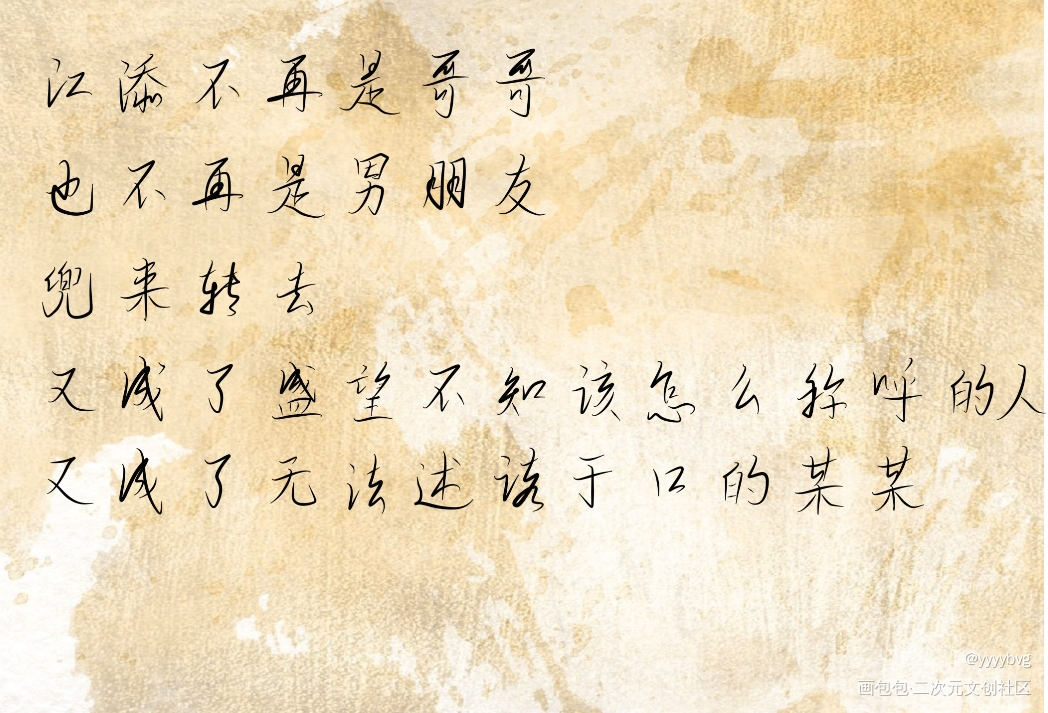 江添不再是哥哥
也不再是男朋友
兜来转去
又成了盛望不知该怎么称呼的人
又成了无法述诸于口的某某
@yyyybvg
画包包·二次元文创社区